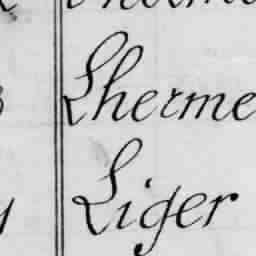 Lherme
Liger